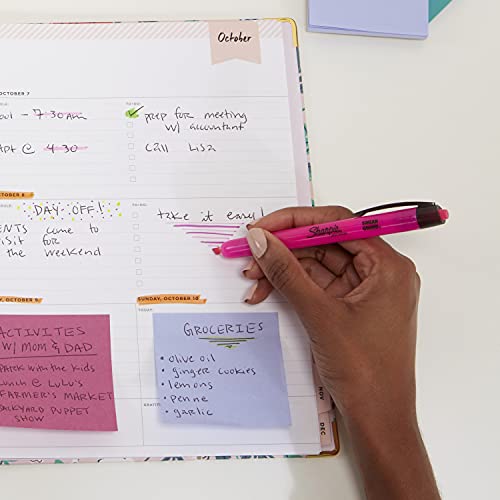 October
OCTOBER 7
TO-DO:
- 7:30 AM
prep for meeting
w/ accountant
@ 4:30
CALL LISA
OCTOBER 8
TO-DO:
DAY OFF!
take it easy!
come to
visit for
the weekend
Sharpie
, OCTOBER 9
SUNDAY, OCTOBER 10
TODAY:
ACTIVITES
W/ MOM & DAD
PARK with the kids
Lunch @ LuLu's
FARMER'S MARKET
BACKYARD PUPPET
SHOW
GROCERIES
• olive oil
• ginger cookies
• lemons
• penne
• garlic
NOV
DEC